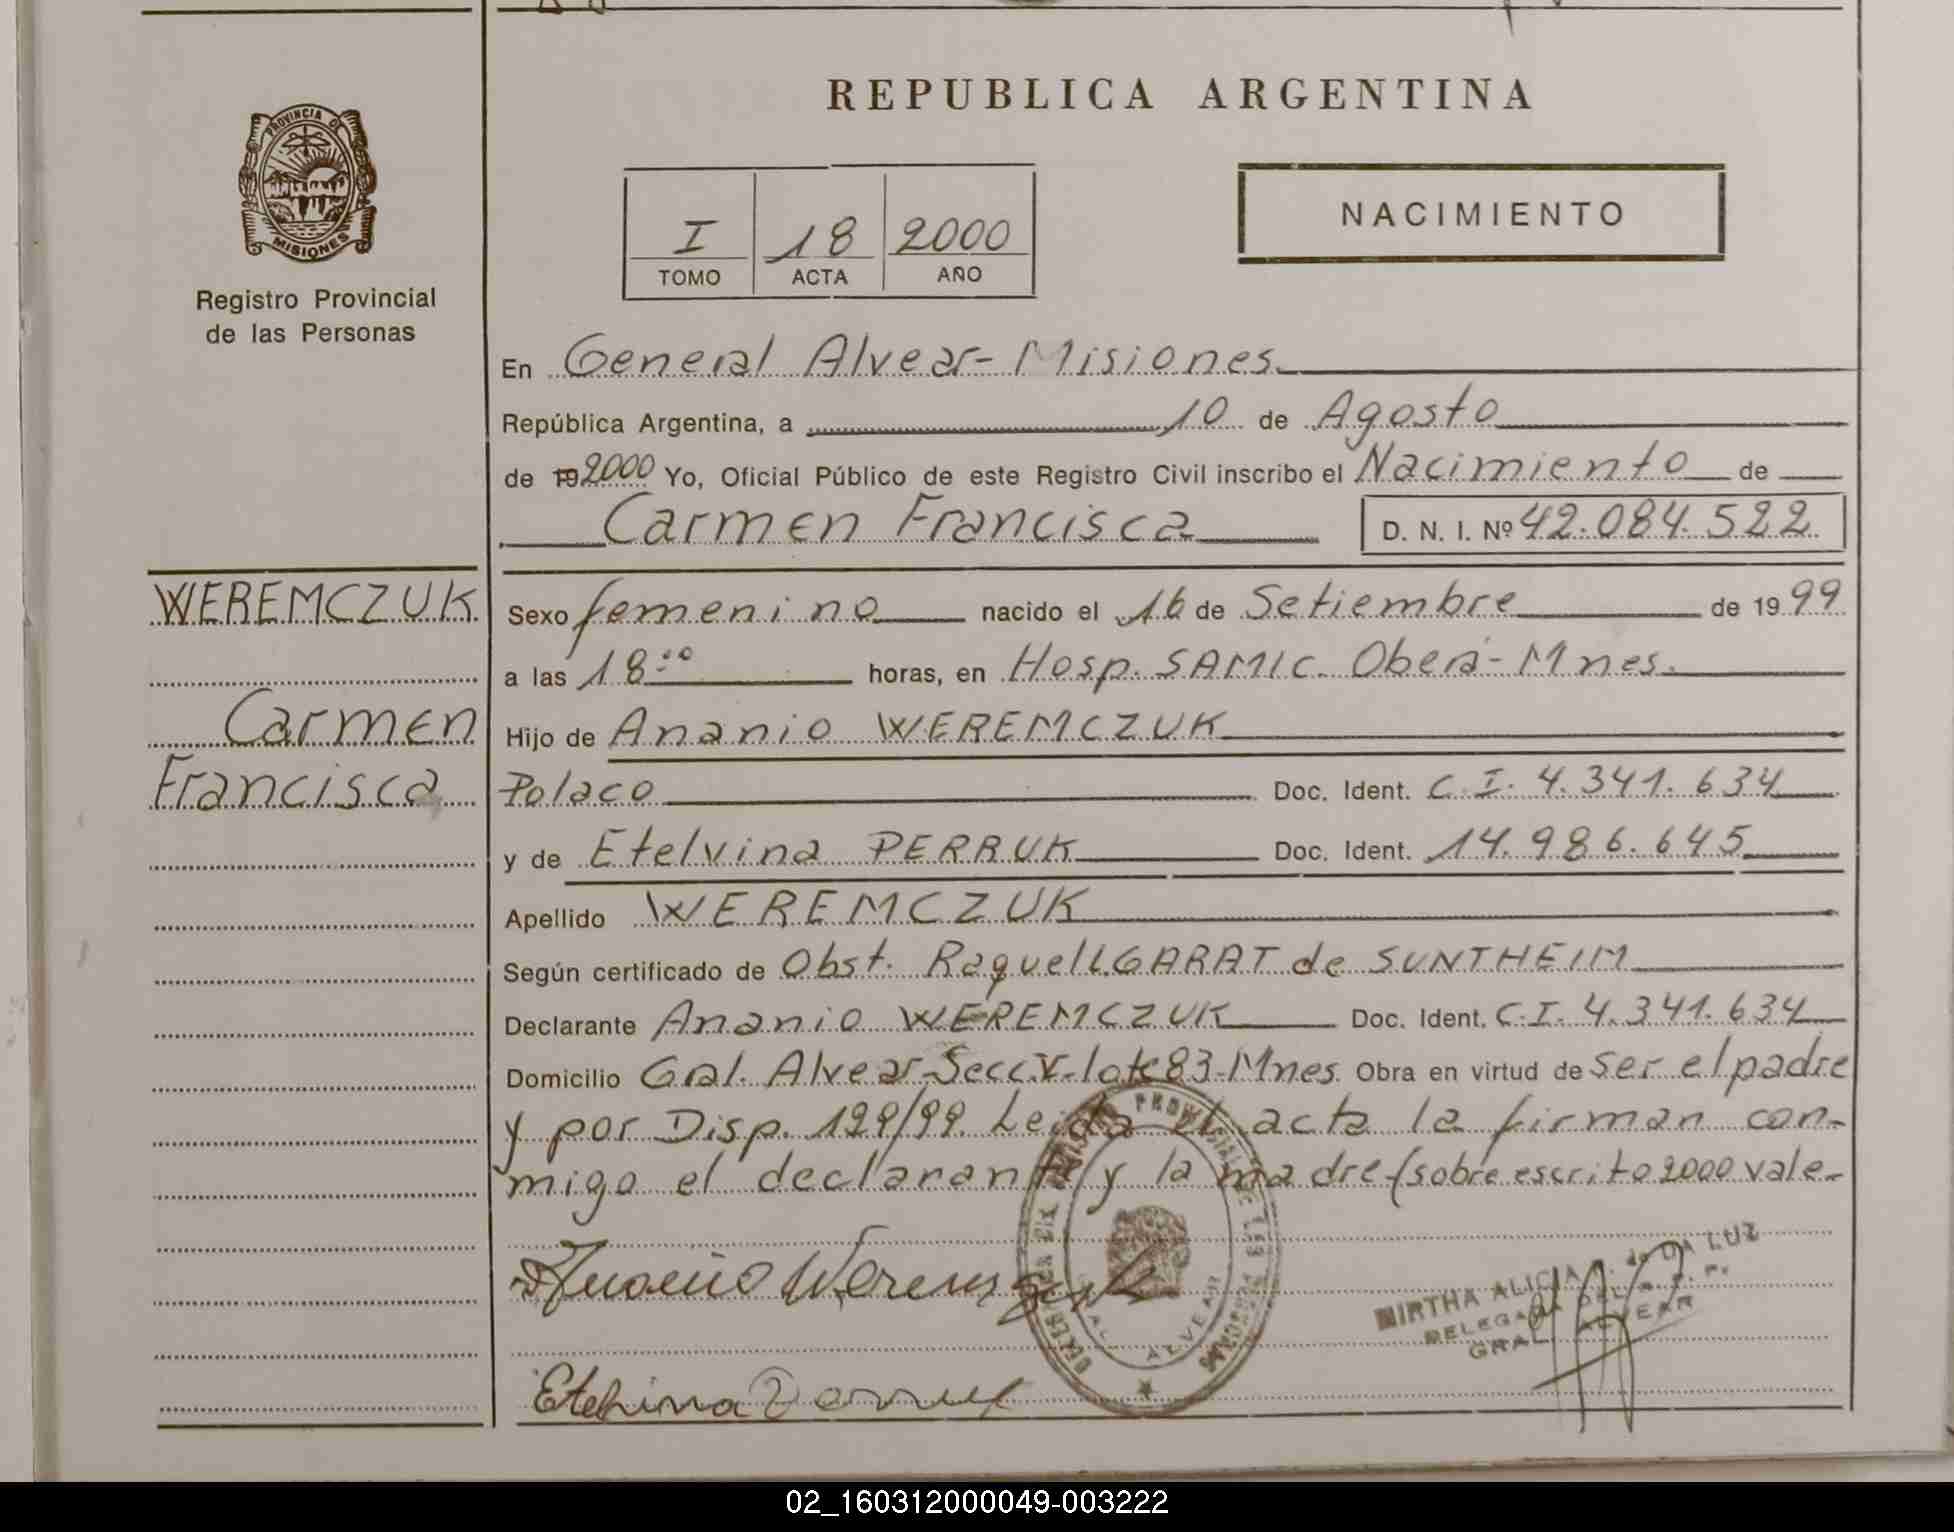 REPUBLICA ARGENTINA
PROVINCIA DE
MISIONES
Registro Provincial
de las Personas
I 18 2000
TOMO ACTA AÑO
NACIMIENTO
En General Alvear-Misiones
República Argentina, a 10 de Agosto
de 19 2000 Yo, Oficial Público de este Registro Civil inscribo el Nacimiento de
Carmen Francisca D. N. I. Nº 42.084.522
WEREMCZUK
Carmen
Francisca
Sexo femenino nacido el 16 de Setiembre de 19 99
a las 18:00 horas, en Hosp. SAMIC. Oberá-Mnes.
Hijo de Ananio WEREMCZUK
Polaco Doc. Ident. C.I. 4.341.634
y de Etelvina PERRUK Doc. Ident. 14.986.645
Apellido WEREMCZUK
Según certificado de Obst. Raquel L. GARAT de SUNTHEIM
Declarante Ananio WEREMCZUK Doc. Ident. C.I. 4.341.634
Domicilio Gral. Alvear-Secc.V-lote 83-Mnes. Obra en virtud de ser el padre
y por Disp. 129/99. Leida el acta la firman con-
migo el declarante y la madre-(sobre escrito 2000 vale-
Etelvina
MIRTHA ALICIA de DA LUZ
DELEGADA DEL R. P. P.
GRAL. ALVEAR
GRAL ALVEAR
02_160312000049-003222